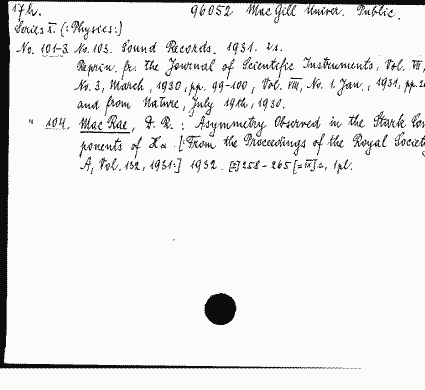 17h. 96052 Mac Gill Univer. Public.
Series X. (:Physics:)
No. 101-3 No. 103. Sound Records. 1931. 2 s.
Reprin. fr. the Journal of Scientific Instruments, Vol. VII,
No. 3, March, 1930, pp. 99-100, Vol. VIII, No. 1. Jan., 1931, pp.
and from Nature, July 19th, 1930.
" 104. Mac Rae, D. R.: Asymmetry Observed in the Stark Com
ponents of Hα [:From the Proceedings of the Royal Society
A, Vol. 132, 1931:] 1932. 258-265 s., 1 pl.